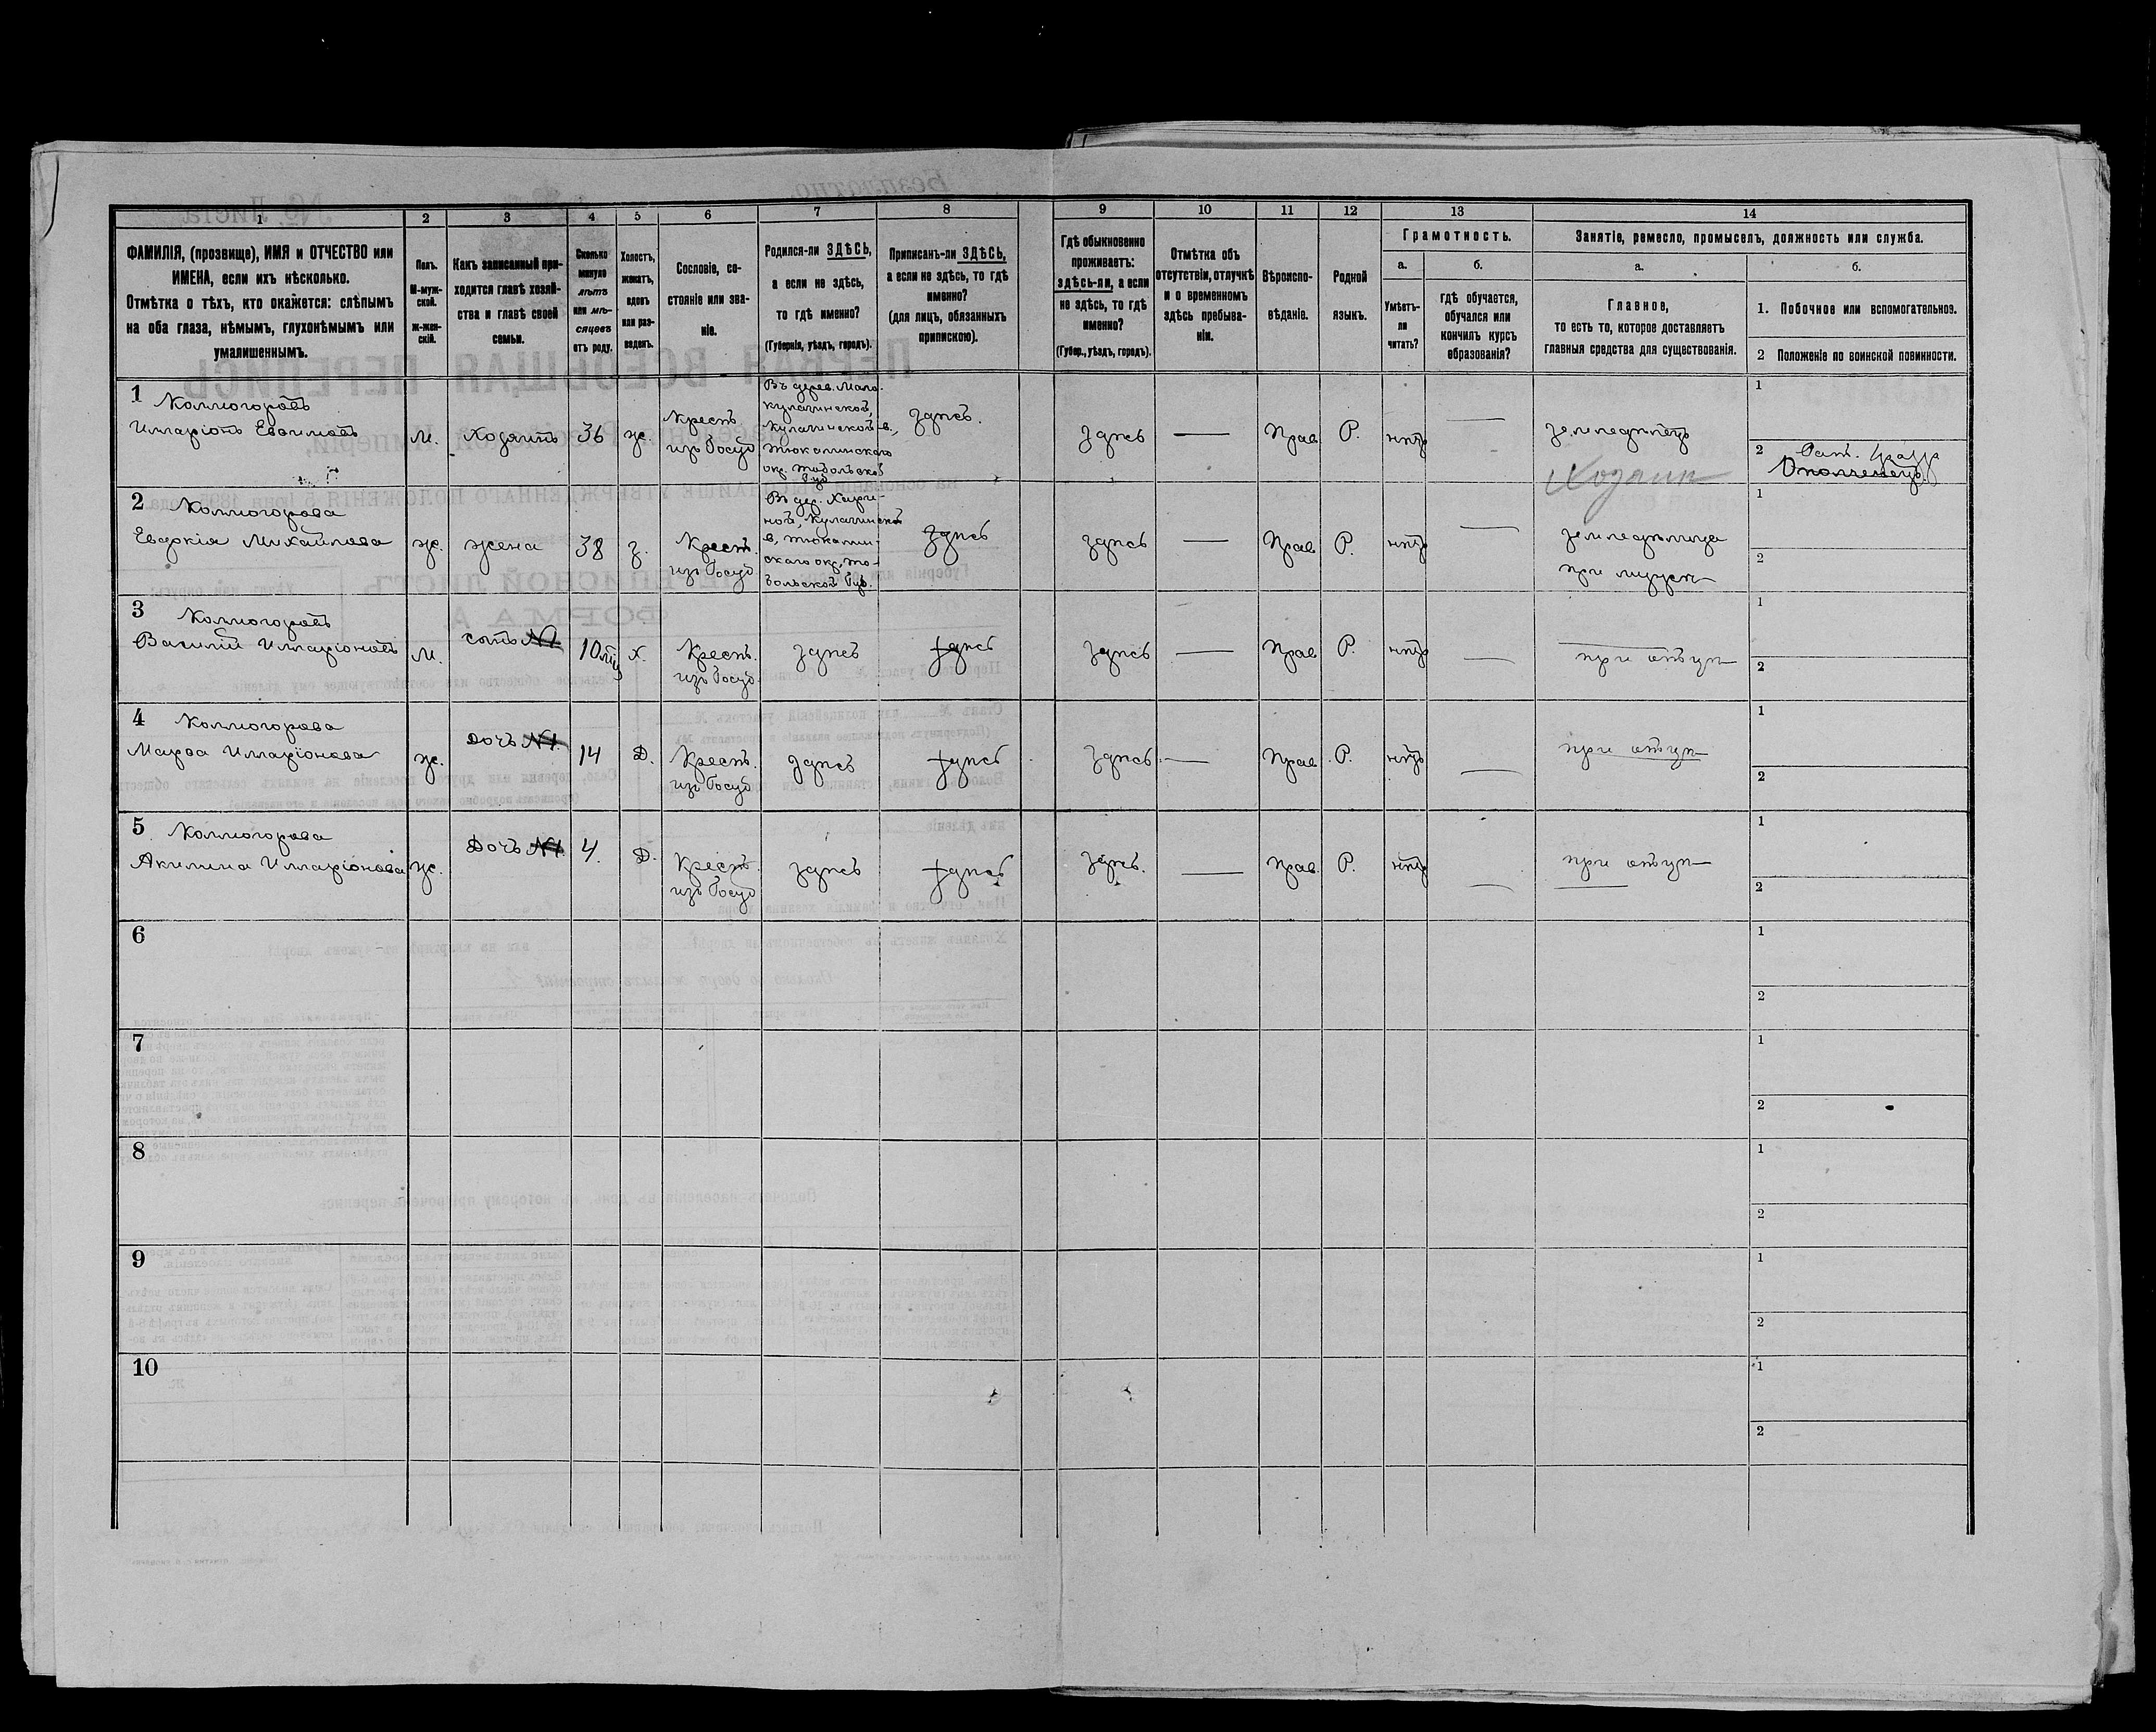 1 2 3 4 5 6 7 8 9 10 11 12 13 14
ФАМИЛІЯ, (прозвище), ИМЯ и ОТЧЕСТВО или
ИМЕНА, если ихъ нѣсколько.
Отмѣтка о тѣхъ, кто окажется: слѣпымъ
на оба глаза, нѣмымъ, глухонѣмымъ или
умалишеннымъ.
Полъ.
М-муж-
ской.
ж-жен-
скій.
Какъ записанный при-
ходится главѣ хозяй-
ства и главѣ своей
семьи.
Сколько
минуло
лѣтъ
или мѣ-
сяцевъ
отъ роду.
Холостъ,
женатъ,
вдовъ
или раз-
веденъ.
Сословіе, со-
стояніе или зва-
ніе.
Родился-ли ЗДѢСЬ,
а если не здѣсь,
то гдѣ именно?
(Губернія, уѣздъ, городъ).
Приписанъ-ли ЗДѢСЬ,
а если не здѣсь, то гдѣ
именно?
(для лицъ, обязанныхъ
припискою).
Гдѣ обыкновенно
проживаетъ:
здѣсь-ли, а если
не здѣсь, то гдѣ
именно?
(Губер., уѣздъ, городъ).
Отмѣтка объ
отсутствіи, отлучкѣ
и о временномъ
здѣсь пребыва-
ніи.
Вѣроиспо-
вѣданіе.
Родной
языкъ.
Грамотность.
а.
Умѣетъ-
ли
читать?
б.
гдѣ обучается,
обучался или
кончилъ курсъ
образованія?
Занятіе, ремесло, промыселъ, должность или служба.
а.
Главное,
то есть то, которое доставляетъ
главныя средства для существованія.
б.
1. Побочное или вспомогательное.
2 Положеніе по воинской повинности.
1
Колмогоровъ
Илларіонъ Евфимовъ
М.
Хозяинъ
36
ж.
Крест.
изъ Госуд
Въ дерев. Мало-
кулачинской,
Кулачинской в,
Тюкалинскаго
окр. Тобольской
Губ
здѣсь.
здѣсь
—
Прав.
Р.
нѣтъ
—
земледѣлецъ
Хозяин
1
2
Ополченецъ
2
Колмогорова
Евдокія Михайлова
ж.
жена
38
з.
Крест.
изъ Госуд
Въ дер.
ной, Кулачинской
в, Тюкалин-
скаго окр, То-
больской Губ.
здѣсь
здѣсь
—
Прав
Р.
нѣтъ
—
земледѣлица
при мужѣ
1
2
3
Колмогоровъ
Василій Илларіоновъ
М.
сынъ №1
10
х.
Крест.
изъ Госуд
здѣсь
здѣсь
здѣсь
—
Прав
Р.
нѣтъ
—
при отцѣ
1
2
4
Колмогорова
Марфа Илларіонова
ж.
дочь №1.
14
Д.
Крест.
изъ Госуд
здѣсь
здѣсь
здѣсь
—
Прав
Р.
нѣтъ
—
при отцѣ
1
2
5
Колмогорова
Акилина Илларіонова
ж.
Дочь №1.
4.
Д.
Крест.
изъ Госуд
здѣсь
здѣсь
здѣсь.
—
Прав.
Р.
нѣтъ
—
при отцѣ
1
2
6
1
2
7
1
2
8
1
2
9
1
2
10
1
2